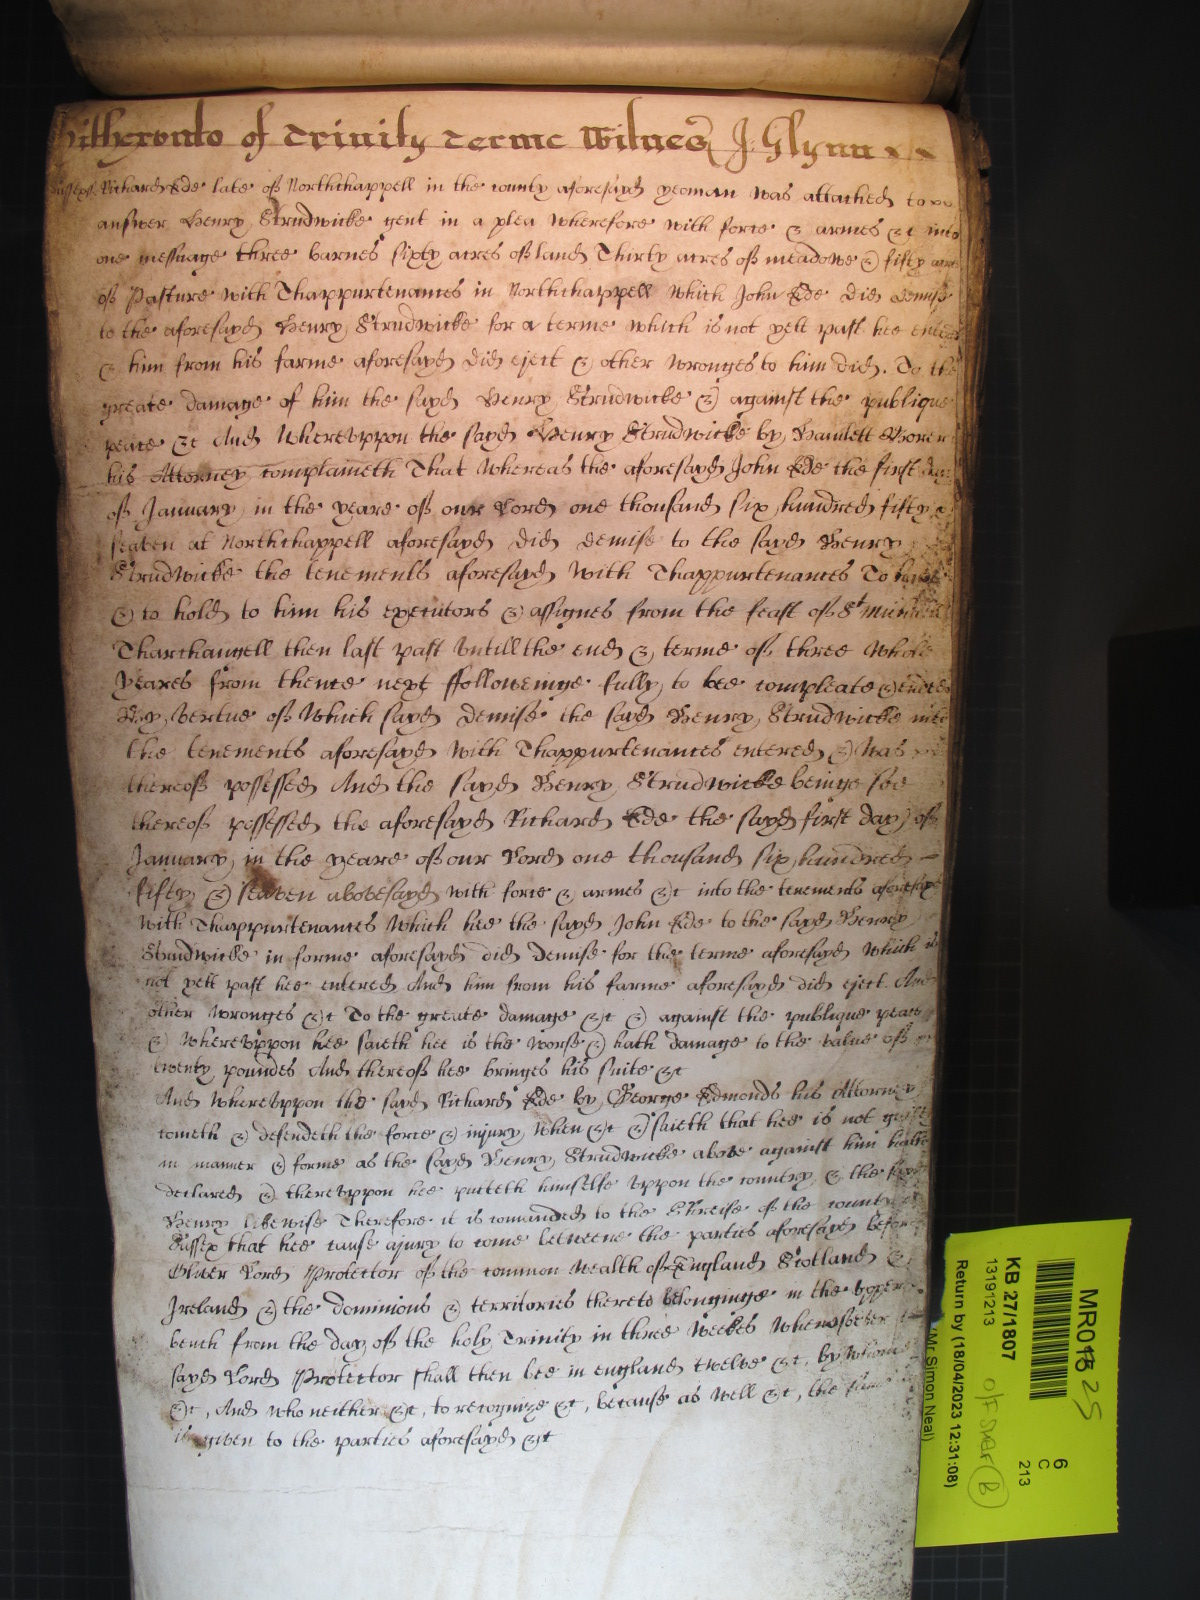 Hitherunto of Trinity Terme Witnes J. Glynn
Sussex Richard Ede late of Northchappell in the county aforesayd yeoman was attached to
answer Henry Strudwicke gent in a plea wherefore with force & armes &c into
one messuage three barnes sixty acres of land Thirty acres of meadowe & fifty acres
of Pasture with Thappurtenances in Northchappell which John Ede did demise
to the aforesayd Henry Strudwicke for a terme which is not yett past hee entered
& him from his farme aforesayd did eject & other wronges to him did. To the
greate damage of him the sayd Henry Strudwicke & against the publique
peace &c And Whereuppon the sayd Henry Strudwicke by Hamlett Hover
his Attorney complaineth That Whereas the aforesayd John Ede the first day
of January in the yeare of our Lord one thousand six hundred fifty &
seaven at Northchappell aforesayd did demise to the sayd Henry
Strudwicke the tenements aforesayd with Thappurtenances To have
& to hold to him his executors & assignes from the feast of St Michaell
Tharchangell then last past untill the end & terme of three whole
yeares from thence next ffolloweinge fully to bee compleate & ended
By vertue of Which sayd demise the sayd Henry Strudwicke into
the tenements aforesayd with Thappurtenances entered & was
thereof possessed And the sayd Henry Strudwicke beinge soe
thereof possessed the aforesayd Richard Ede the sayd first day of
January in the yeare of our Lord one thousand six hundred
fifty & seaven abovesayd with force & armes &c into the tenements aforesayd
with Thappurtenances Which hee the sayd John Ede to the sayd Henry
Strudwicke in forme aforesayd did demise for the terme aforesayd which is
not yett past hee entered And him from his farme aforesayd did eject And
other wronges &c To the greate damage &c & against the publique peace
& Whereuppon hee saieth hee is the worse & hath damage to the value of
twenty poundes And thereof hee bringes his suite &c
And Whereuppon the sayd Richard Ede by George Edmonds his Attorney
cometh & defendeth the force & injury When &c & saieth that hee is not guilty
in manner & forme as the sayd Henry Strudwicke above against him hath
declared & thereuppon hee putteth himselfe uppon the country & the sayd
Henry likewise Therefore it is comanded to the Shreife of the county of
Sussex that hee cause a jury to come betweene the parties aforesayd before
Oliver Lord Protector of the common wealth of England Scotland &
Ireland & the dominions & territories thereto belonginge in the upper
bench from the day of the holy Trinity in three Weekes Wheresoever the
sayd Lord Protector shall then bee in england twelve &c, by whome
&c, And who neither &c, to recognize &c, because as well &c, the same
is given to the parties aforesayd &c
MR018 25
6
C
213
KB 27/1807
13191213
offsher (B)
Return by (18/04/2023 12:31:08)
(Mr Simon Neal)